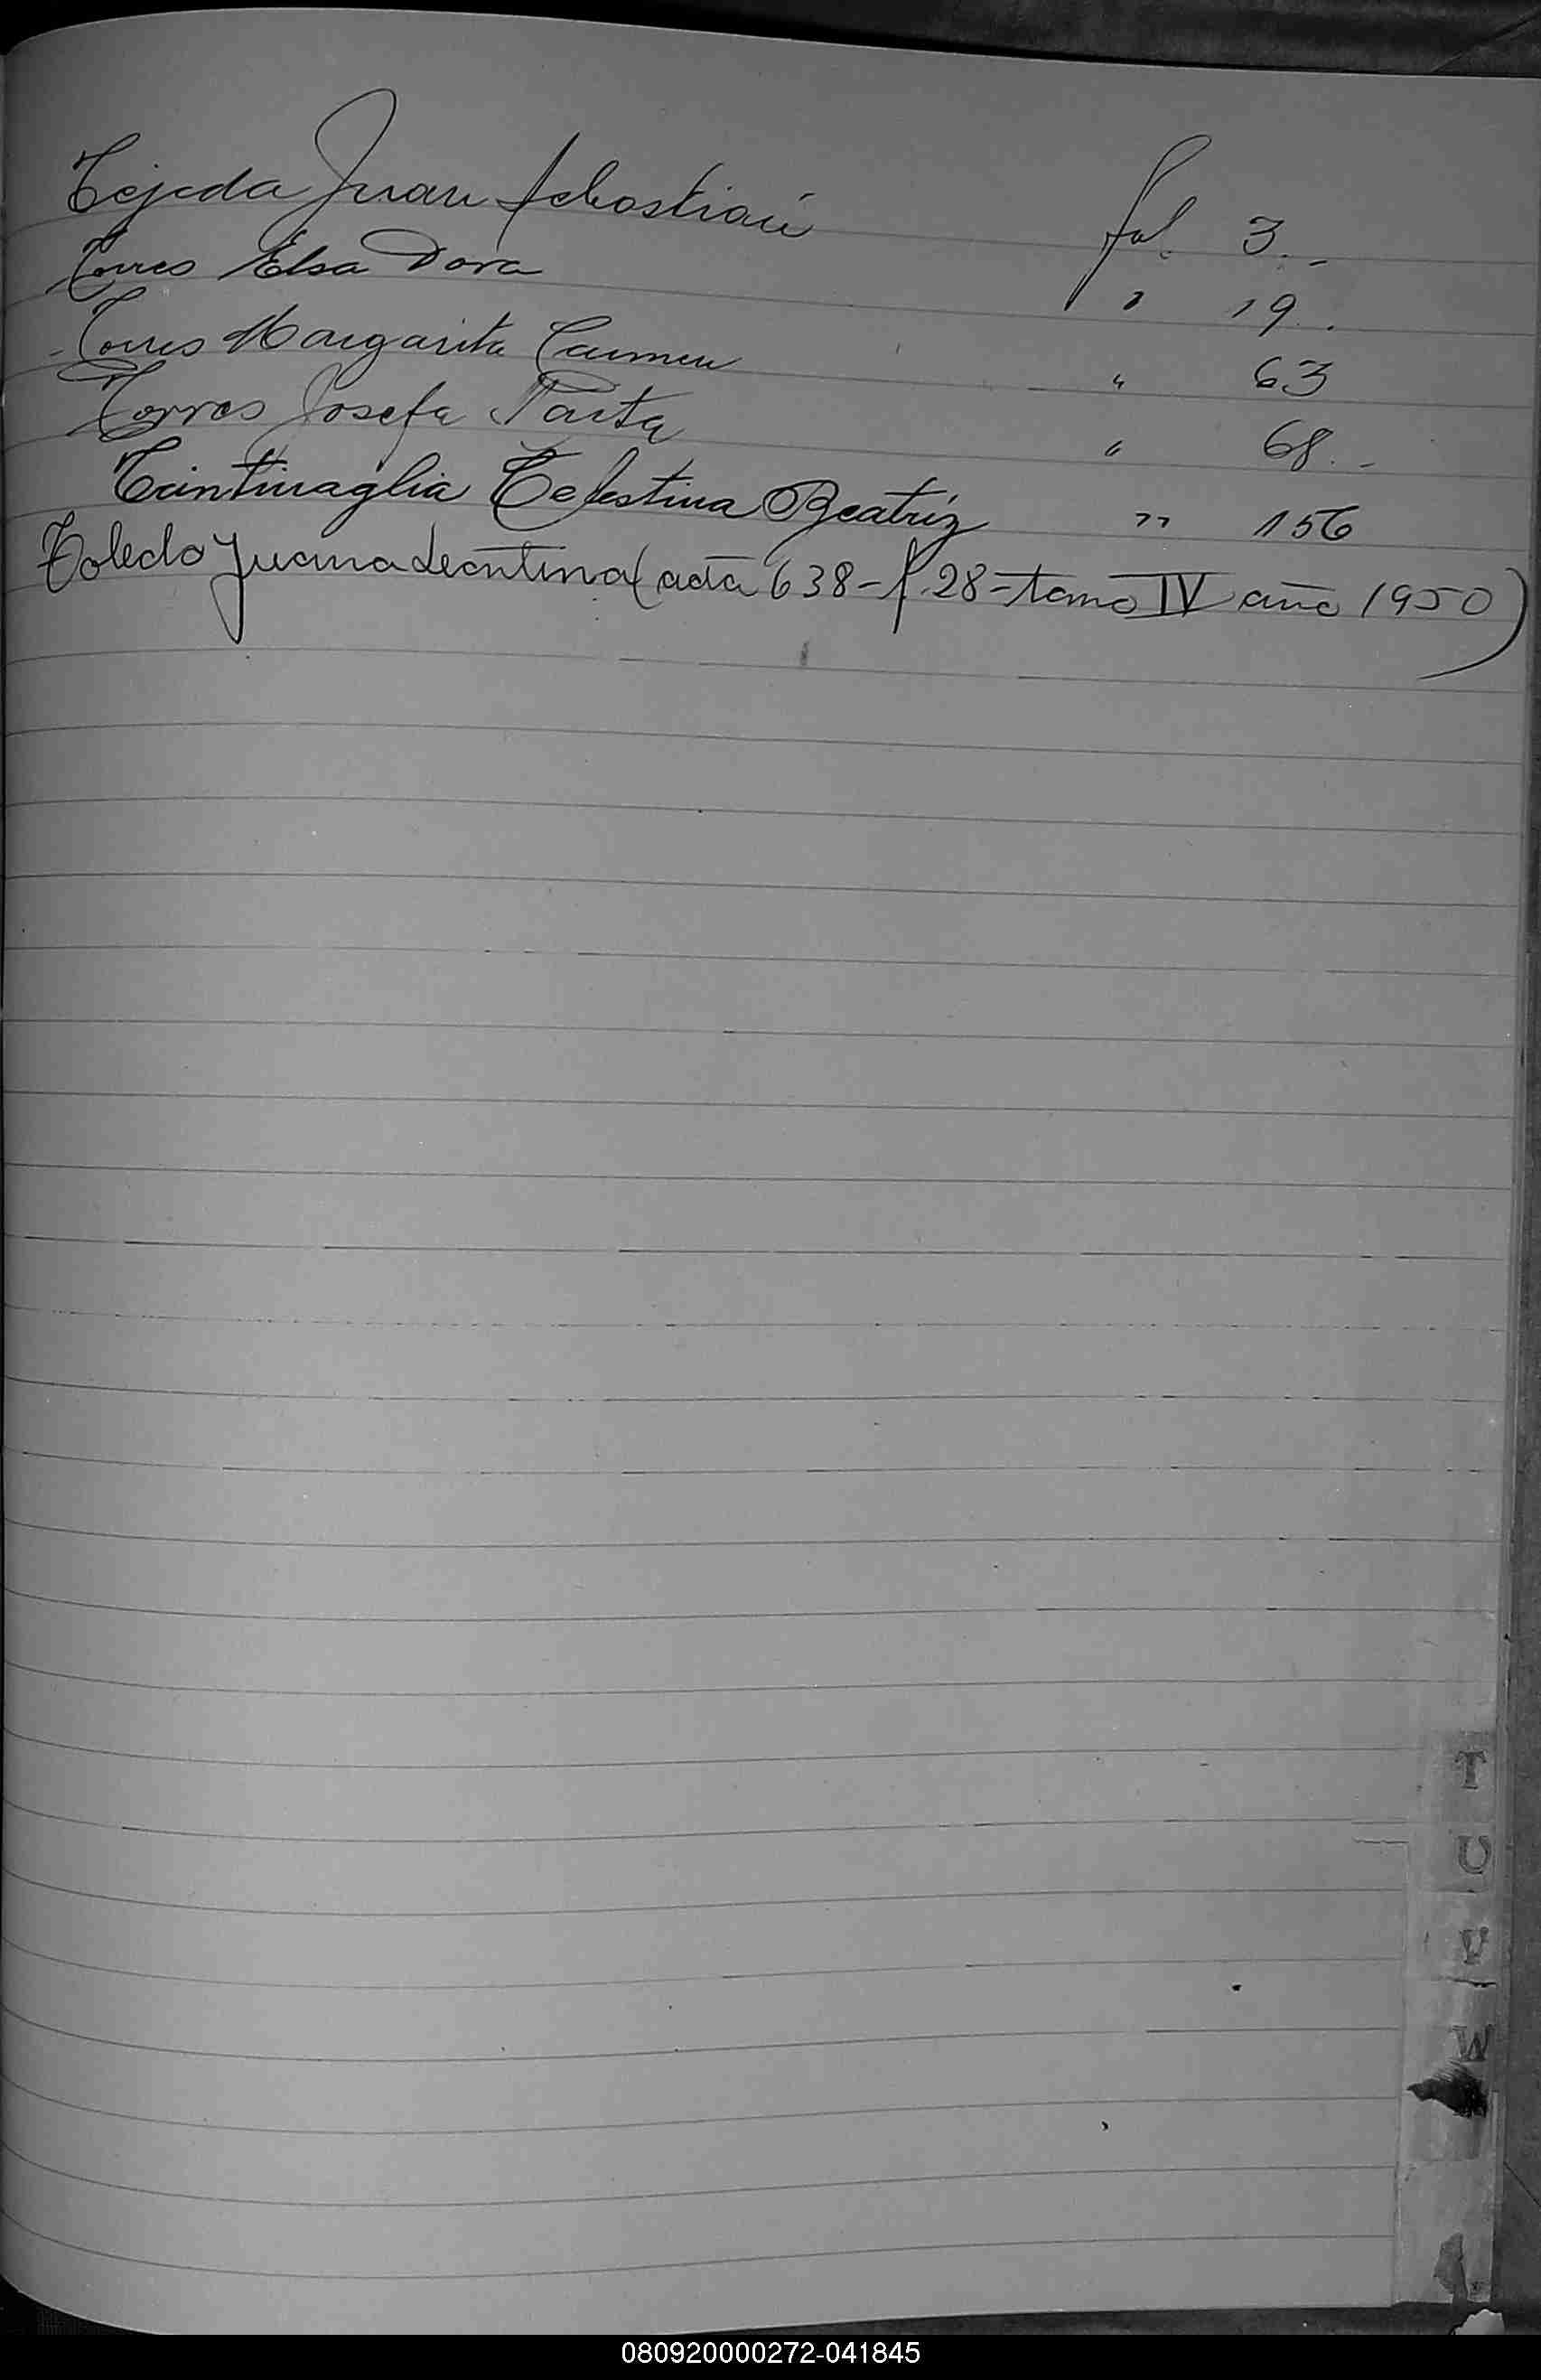 Tejeda Juan Sebastian fol. 3.-
Torres Elsa Dora " 19.
Torres Margarita Carmen " 63
Torres Josefa " 68.-
Trintinaglia Celestina Beatriz " 156
Toledo Juana Leontina (acta 638-f. 28-tomo IV año 1950)
T
U
V
W
080920000272-041845